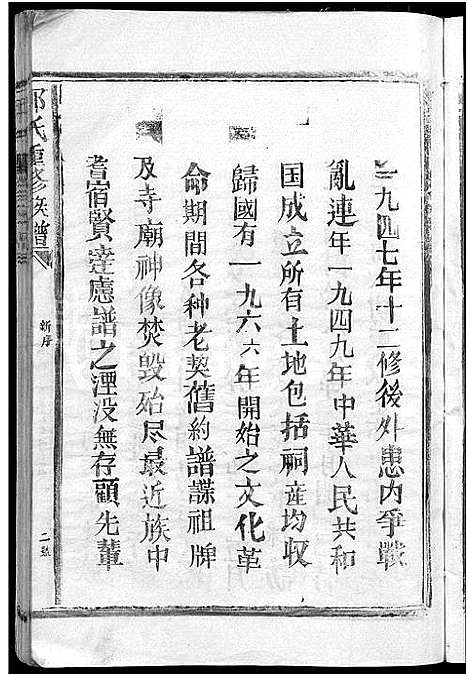 一九四七年十二修後外患内爭戰
亂連年一九四九年中華人民共和
国成立所有土地包括祠産均収
歸國有一九六六年開始之文化革
命期間各种老契舊約譜諜祖牌
及寺廟神像焚毀殆尽最近族中
耆宿賢達慮譜之湮没無存顧先輩
氏重修族譜
新序
二號